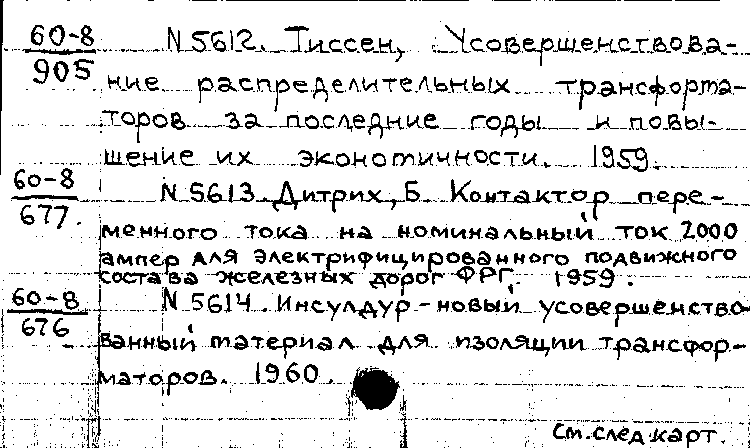 60-8 N 5612. Тиссен, Усовершенствова-
905 ние распределительных трансфорта-
торов за последние годы и повы-
шение их экономичности. 1959.
60-8 N 5613. Дитрих, Б. Контактор пере-
677. менного тока на номинальный ток 2000
ампер для электрифицированного подвижного
состава железных дорог ФРГ. 1959.
60-8 N 5614. Инсулдур-новый усовершенство
676 ванный материал для изоляции трансфор-
маторов. 1960.
См.след.карт.